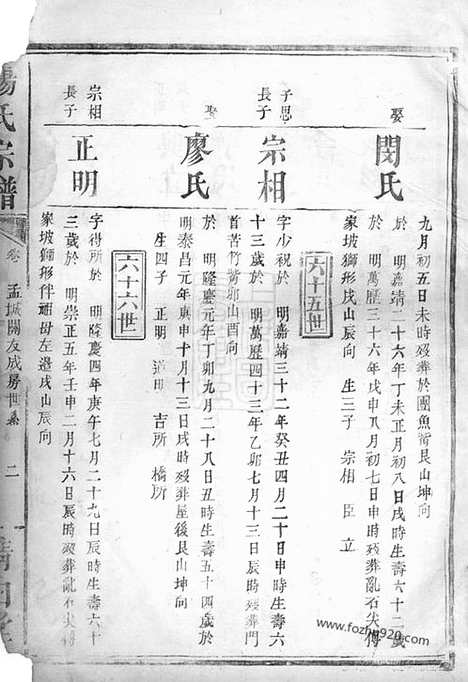 九月初五日未時歿葬於團魚嘴艮山坤向
娶
閔氏
於 明嘉靖二十六年丁未正月初八日戌時生壽六十二歲
於 明萬歷三十六年戊申八月初七日申時歿葬亂石尖傅
家坡獅形戌山辰向 生三子 宗相 臣 立
六十五世
子思
長子
宗相
字少祝於 明嘉靖三十二年癸丑四月二十日申時生壽六
十三歲於 明萬歷四十三年乙卯七月十三日辰時歿葬門
首苦竹嘴卯山酉向
娶
廖氏
於 明隆慶元年丁卯九月二十八日丑時生壽五十四歲於
明泰昌元年庚申十月十三日戌時歿葬屋後艮山坤向
生四子 正明 道明 吉所 橋所
六十六世
宗相
長子
正明
字得所於 明隆慶四年庚午七月二十九日辰時生壽六十
三歲於 明崇正五年壬申二月十六日辰時歿葬亂石尖傅
家坡獅形伴祖母左邊戌山辰向
楊氏宗譜
卷
孟城關友成房世系
二
www.fozhu920.com